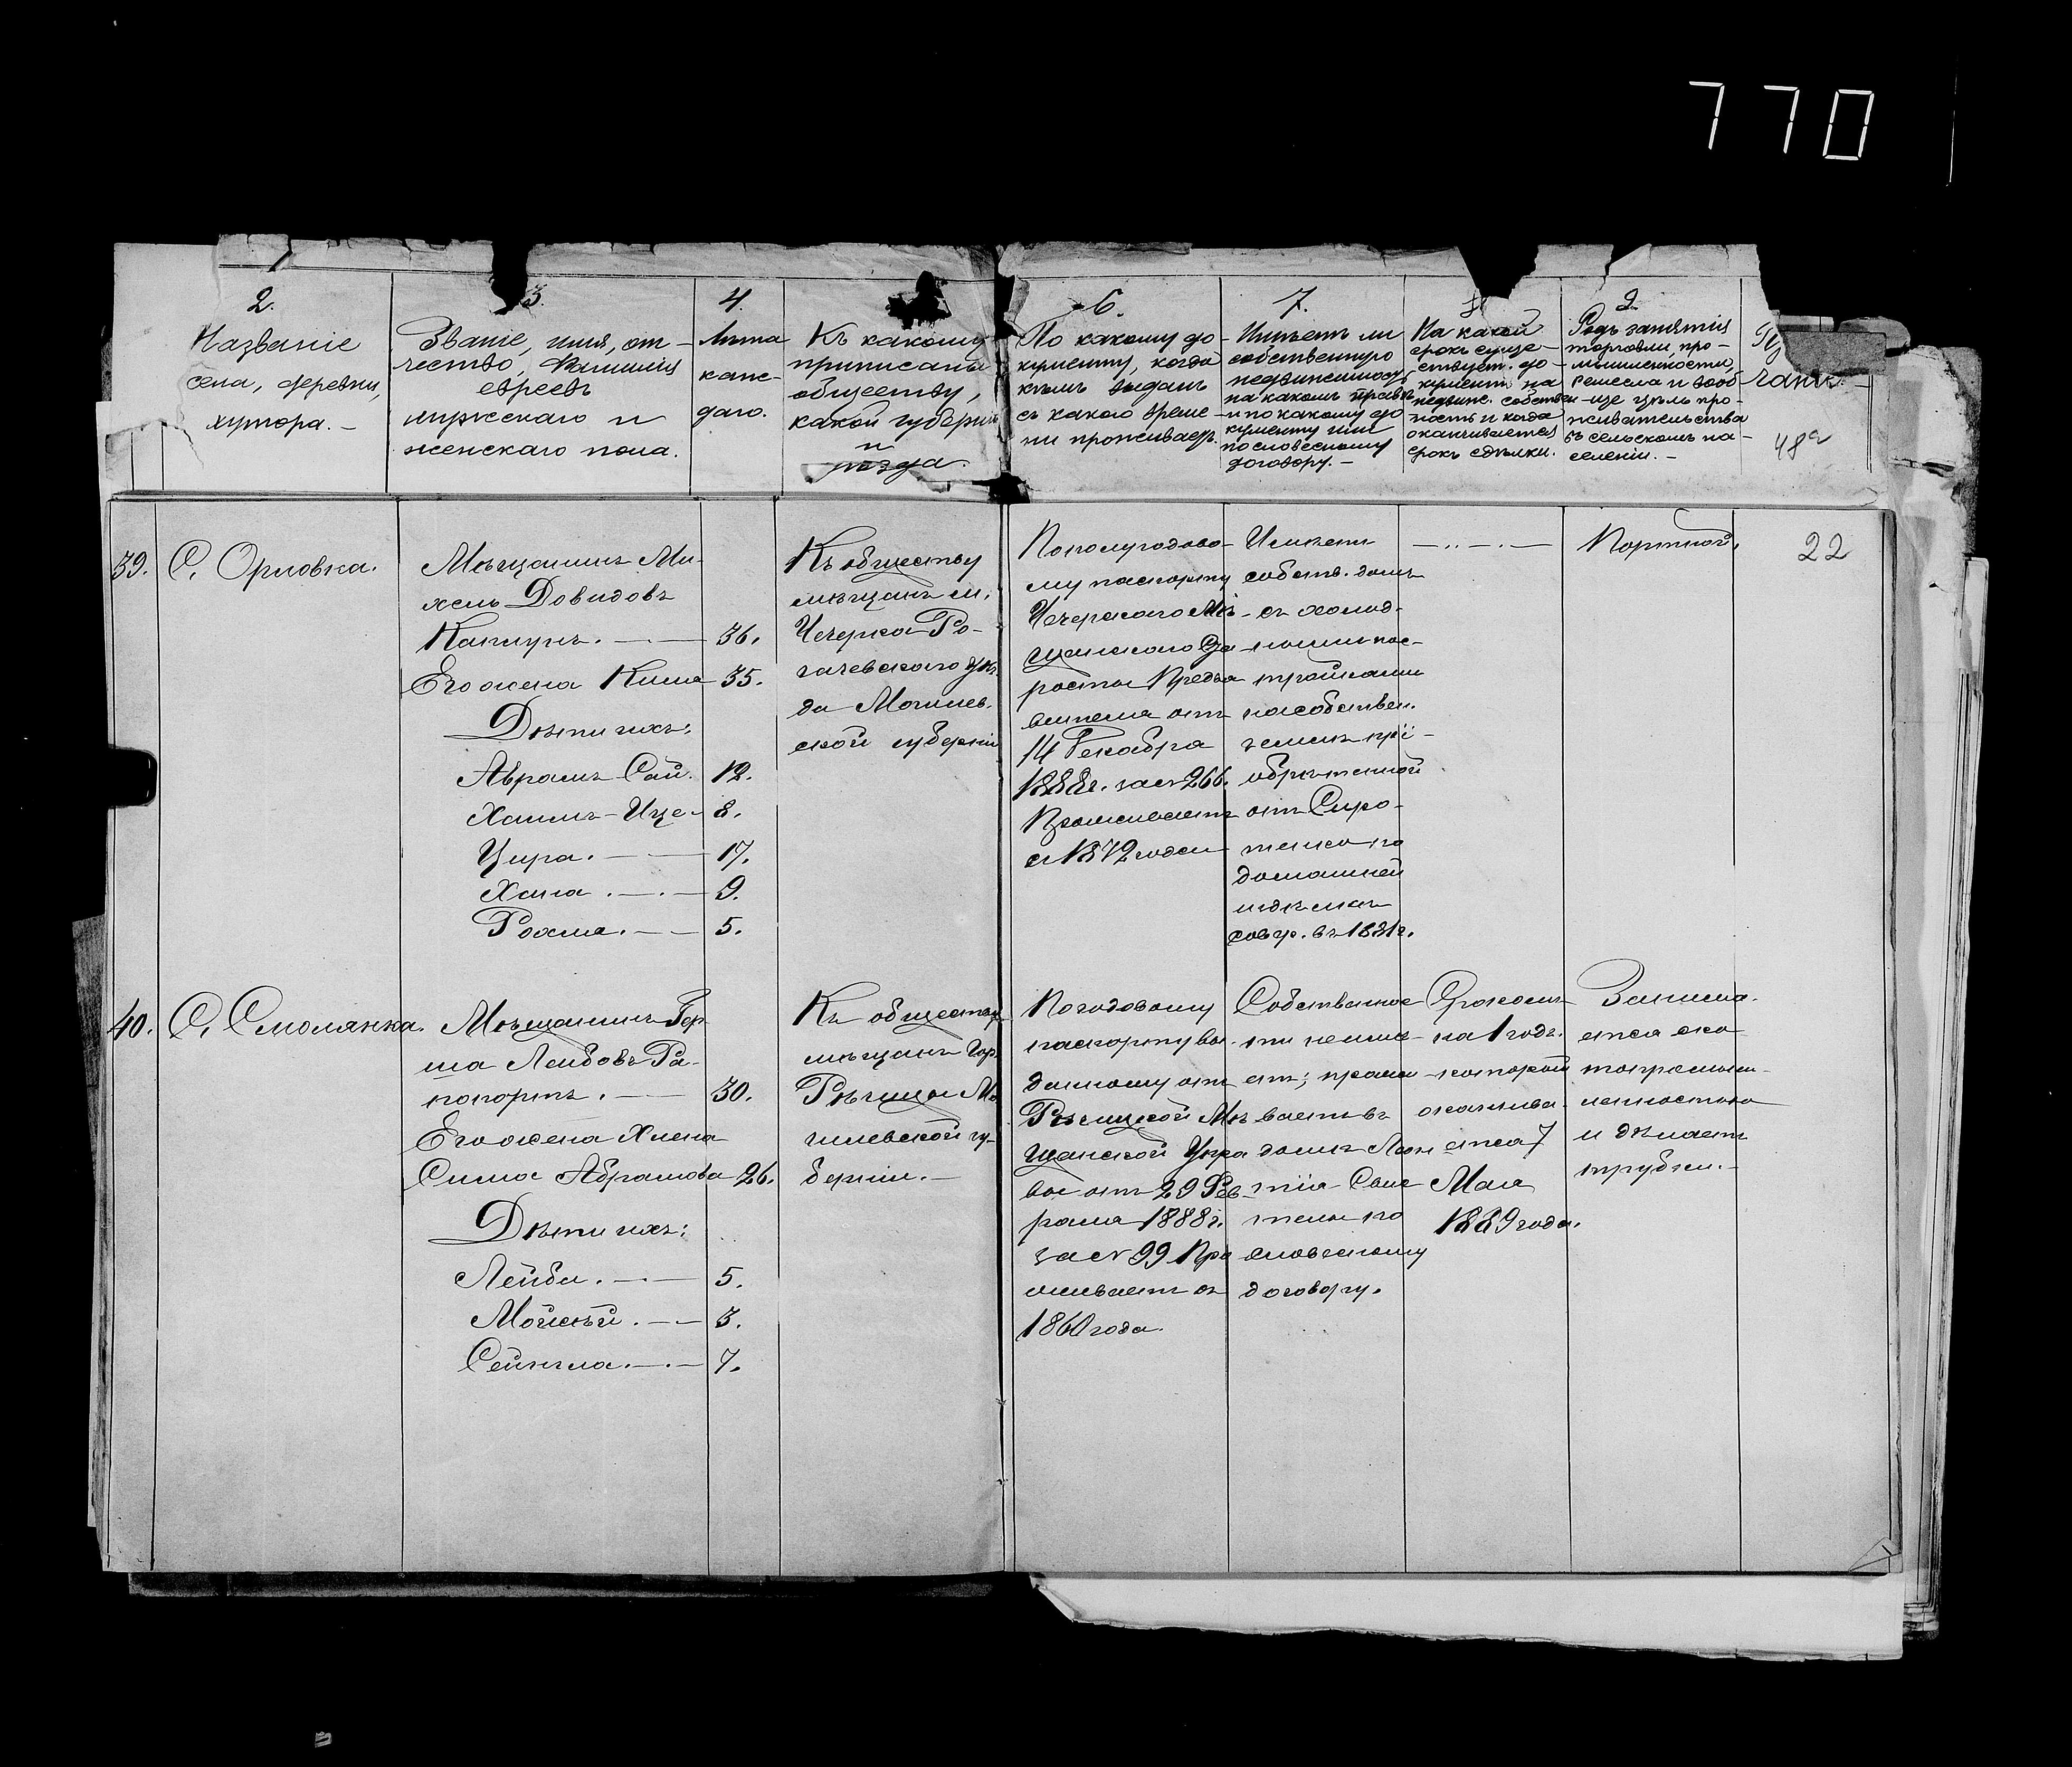 770
2.
Названіе
села, деревни,
хутора. –
3.
Званіе, имя, от-
чество, Фамилія
евреевъ
мужскаго и
женскаго пола.
4.
Лѣта
каж-
даго.
Къ какому
приписаны
обществу,
какой губерніи
и
уѣзда.
6.
По какому до-
кументу, когда
кѣмъ выданъ
съ какого време-
ни проживаетъ.
7.
Имѣетъ ли
собственную
недвижимость
на какомъ правѣ
и по какому до
кументу или
по словесному
договору. –
На какой
срокъ суще-
ствует. до-
кументъ на
недвиж. собствен-
ность и когда
оканчивается
срокъ сдѣлки.
9.
Родъ занятія
торговли, про-
мышленности,
ремесла и вооб
-ще цѣль про-
живательства
въ сельскомъ на-
селеніи. –
48а
39.
С. Орловка.
Мѣщанинъ Ми-
хель Довидовъ
Каплунъ. — 36.
Его жена Кила 35.
Дѣти ихъ:
Абрамъ Сай. 12.
Хаимъ-Ице- 8.
Цира. — 17.
Хана. — 9.
Рохля. — 5.
Къ обществу
мѣщанъ м.
Чечерска Ро-
гачевскаго уѣз.
да Могилев.
ской губерніи
По полугодово-
му паспорту
Чечерскаго Мѣ-
щанскаго Ста
росты Предъя
вителя отъ
14 Декабря
1888г. за № 266.
Проживаетъ
съ 1872 года
Имѣетъ
собств. домъ
съ холод-
ными пос-
тройками
на собствен.
землѣ прі-
обрѣтенной
от Сиро-
тенко по
домашней
сдѣлкѣ
сов р. въ 1881г.
—..—.—
Портной.
22
40.
С. Смолянка.
Мѣщанинъ Гер
ша Лейбовъ Ра-
попортъ. — 30.
Его жена Хиена
Сима Абрамова 26.
Дѣти ихъ:
Лейба. — 5.
Мойсѣй. — 3.
Сейнгла. — 7.
Къ обществу
мѣщанъ Гор.
Рѣчицы Мо
гилевской гу-
берніи. –
По годовому
паспорту вы-
данному отъ
Рѣчицкой Мѣ
щанской Упра
вы отъ 29 Фев-
раля 1888г.
за № 99 Про
живаетъ съ
1860 года.
Собственнос
ти не имѣ-
етъ; прожи-
ваетъ въ
домѣ Леон
тія Свис
тели по
словесному
договору.
Срокомъ
на 1 годъ.
который
оканчива-
ется 7
Мая
1889 года.
Занима-
ется ско
топромыш-
ленностью
и дѣлаетъ
трубки. –